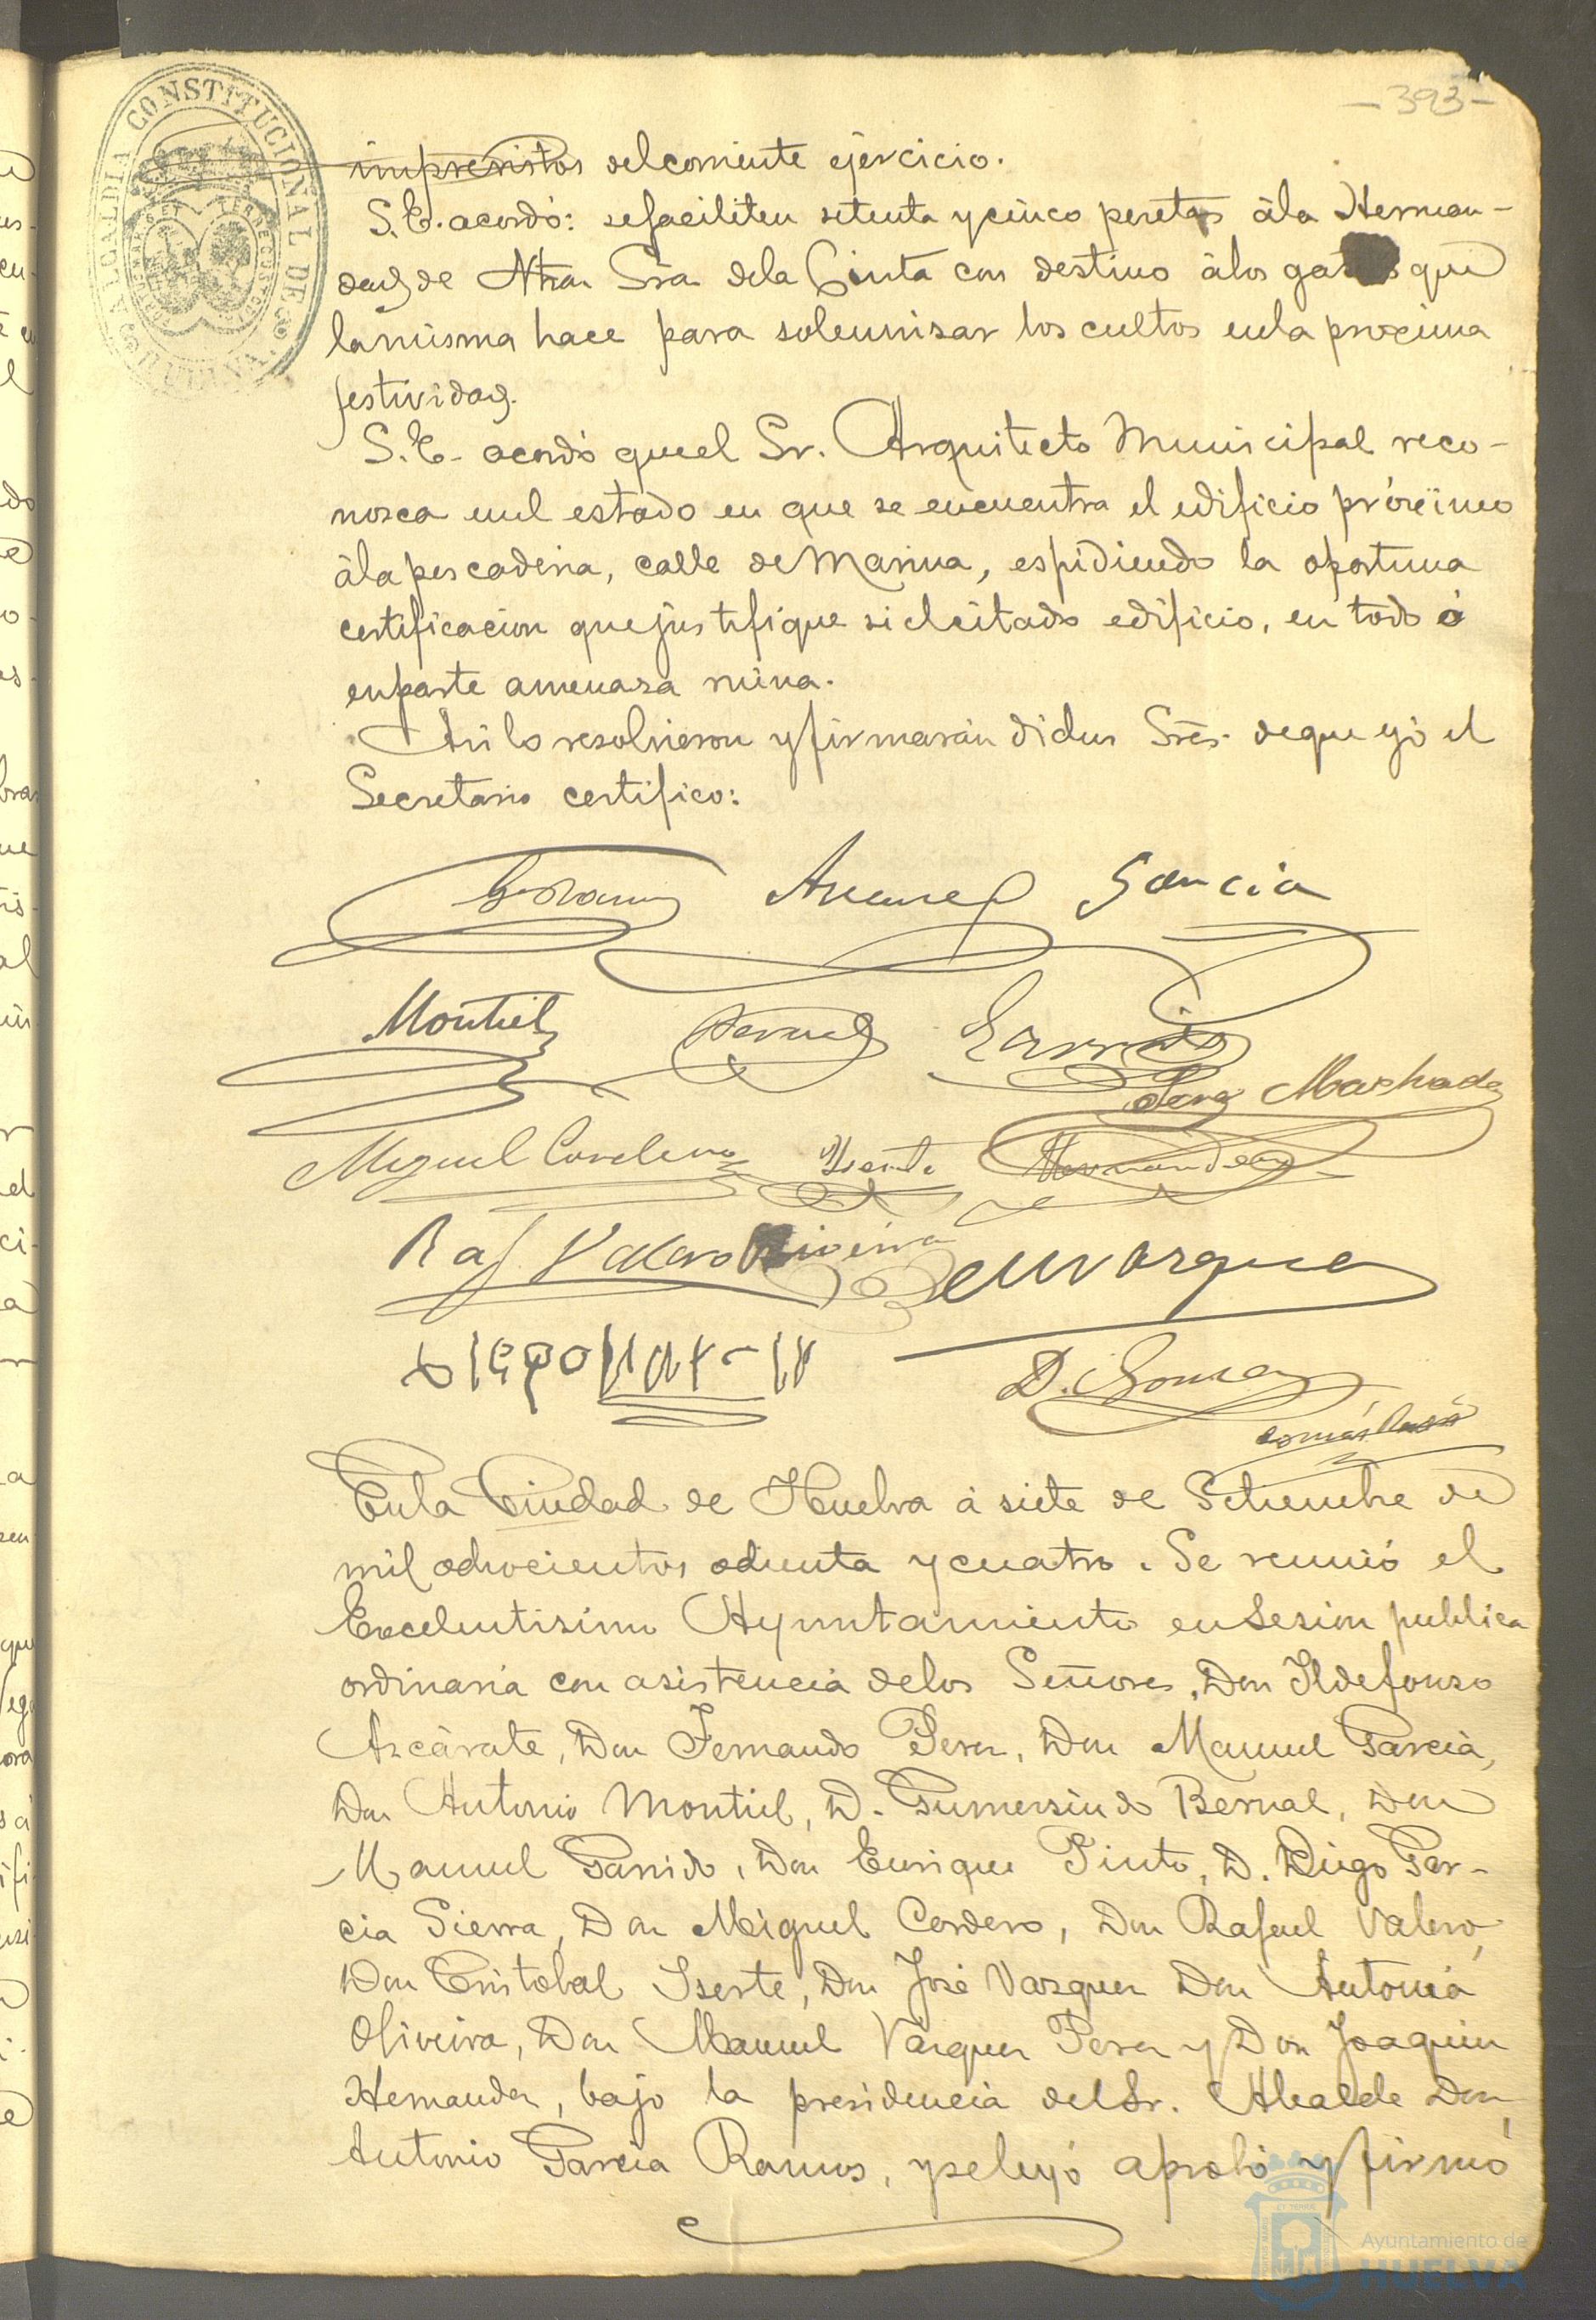 -393-
ALCALDIA CONSTITUCIONAL DE HUELVA
imprevistos del corriente ejercicio.
S. E. acordó: se faciliten setenta y cinco pesetas à la Herman-
dad de Ntra Sra de la Cinta con destino à los gastos que
la misma hace para solemnisar los cultos en la proxima
festividad.
S. E. acordó que el Sr. Arquitecto Municipal reco-
nosca en el estado en que se encuentra el edificio próximo
à la pescaderia, calle de Marina, espidiendo la oportuna
certificacion que justifique si el citado edificio, en todo ó
en parte amenasa ruina.
Asi lo resolvieron y firmarán dichos Sres. de que yó el
Secretario certifico:
García
Montiel Bernal Garrido
Perez Machado
Miguel Cordero Hernandez
Raf. Valero Oliveira
M Vazquez
Diego
D. Gomez
Tomás
En la Ciudad de Huelva à siete de Setiembre de
mil ochocientos ochenta y cuatro. Se reunió el
Excelentisimo Ayuntamiento en Sesion publica
ordinaria con asistencia de los Señores, Don Ildefonso
Azcárate, Don Fernando Perez, Don Manuel Garcia,
Don Antonio Montiel, D. Gumersindo Bernal, Don
Manuel Garrido, Don Enrique Pinto, D. Diego Gar-
cia Sierra, Don Miguel Cordero, Don Rafael Valero,
Don Cristobal Iserte, Don José Vazquez Don Antonio
Oliveira, Don Manuel Vazquez Perez y Don Joaquin
Hernandez, bajo la presidencia del Sr. Alcalde Don
Antonio Garcia Ramos, y se leyó aprobó y firmó
Ayuntamiento de
HUELVA